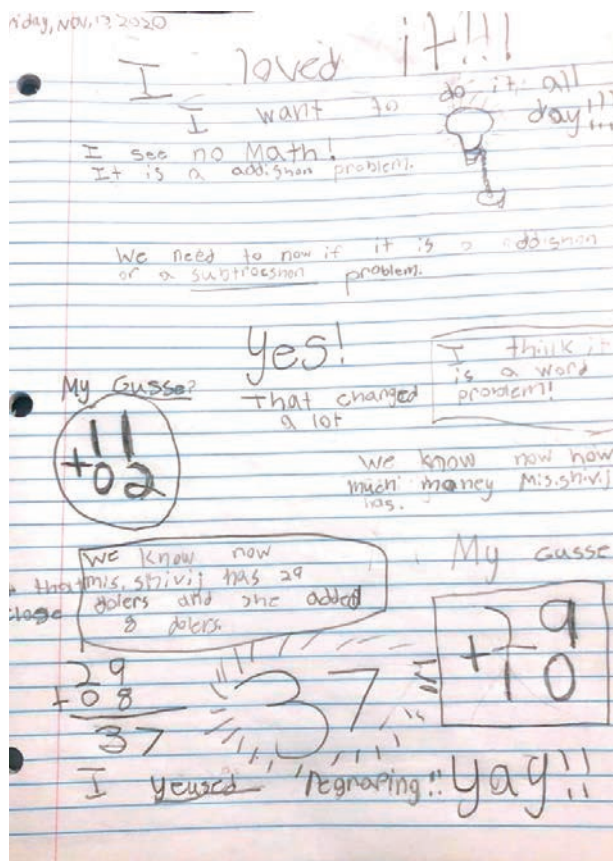 riday, Nov, 13, 2020
I loved it!!!
I want to do it all
day!!!
I see no Math!
It is a addishon problem.
We need to now if it is a addishon
or a subtrocshon problem.
Yes!
That changed
a lot
I think it
is a word
problem!
My Gusse?
11
+02
We know now how
much money Mis.shivij
has.
We know now
mis.shivij has 29
dolers and she added
8 dolers.
that
close
My Gusse
+10
29
+08
37
37
I yeused regrouping!! Yay!!